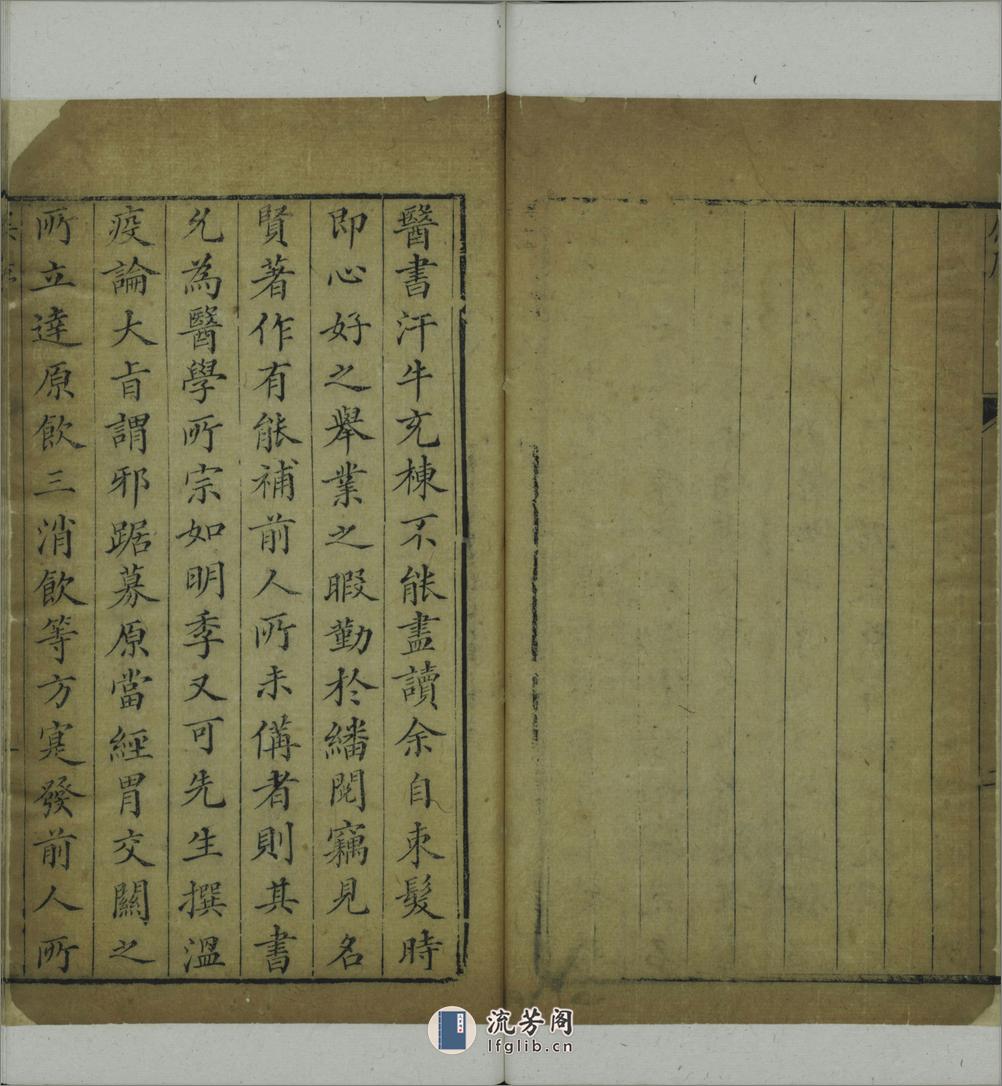 醫書汗牛充棟不能盡讀余自束髮時
即心好之舉業之暇勤於繙閱竊見名
賢著作有能補前人所未備者則其書
允為醫學所宗如明季又可先生撰溫
疫論大旨謂邪踞募原當經胃交關之
所立達原飲三消飲等方寔發前人所
流芳阁
lfglib.cn